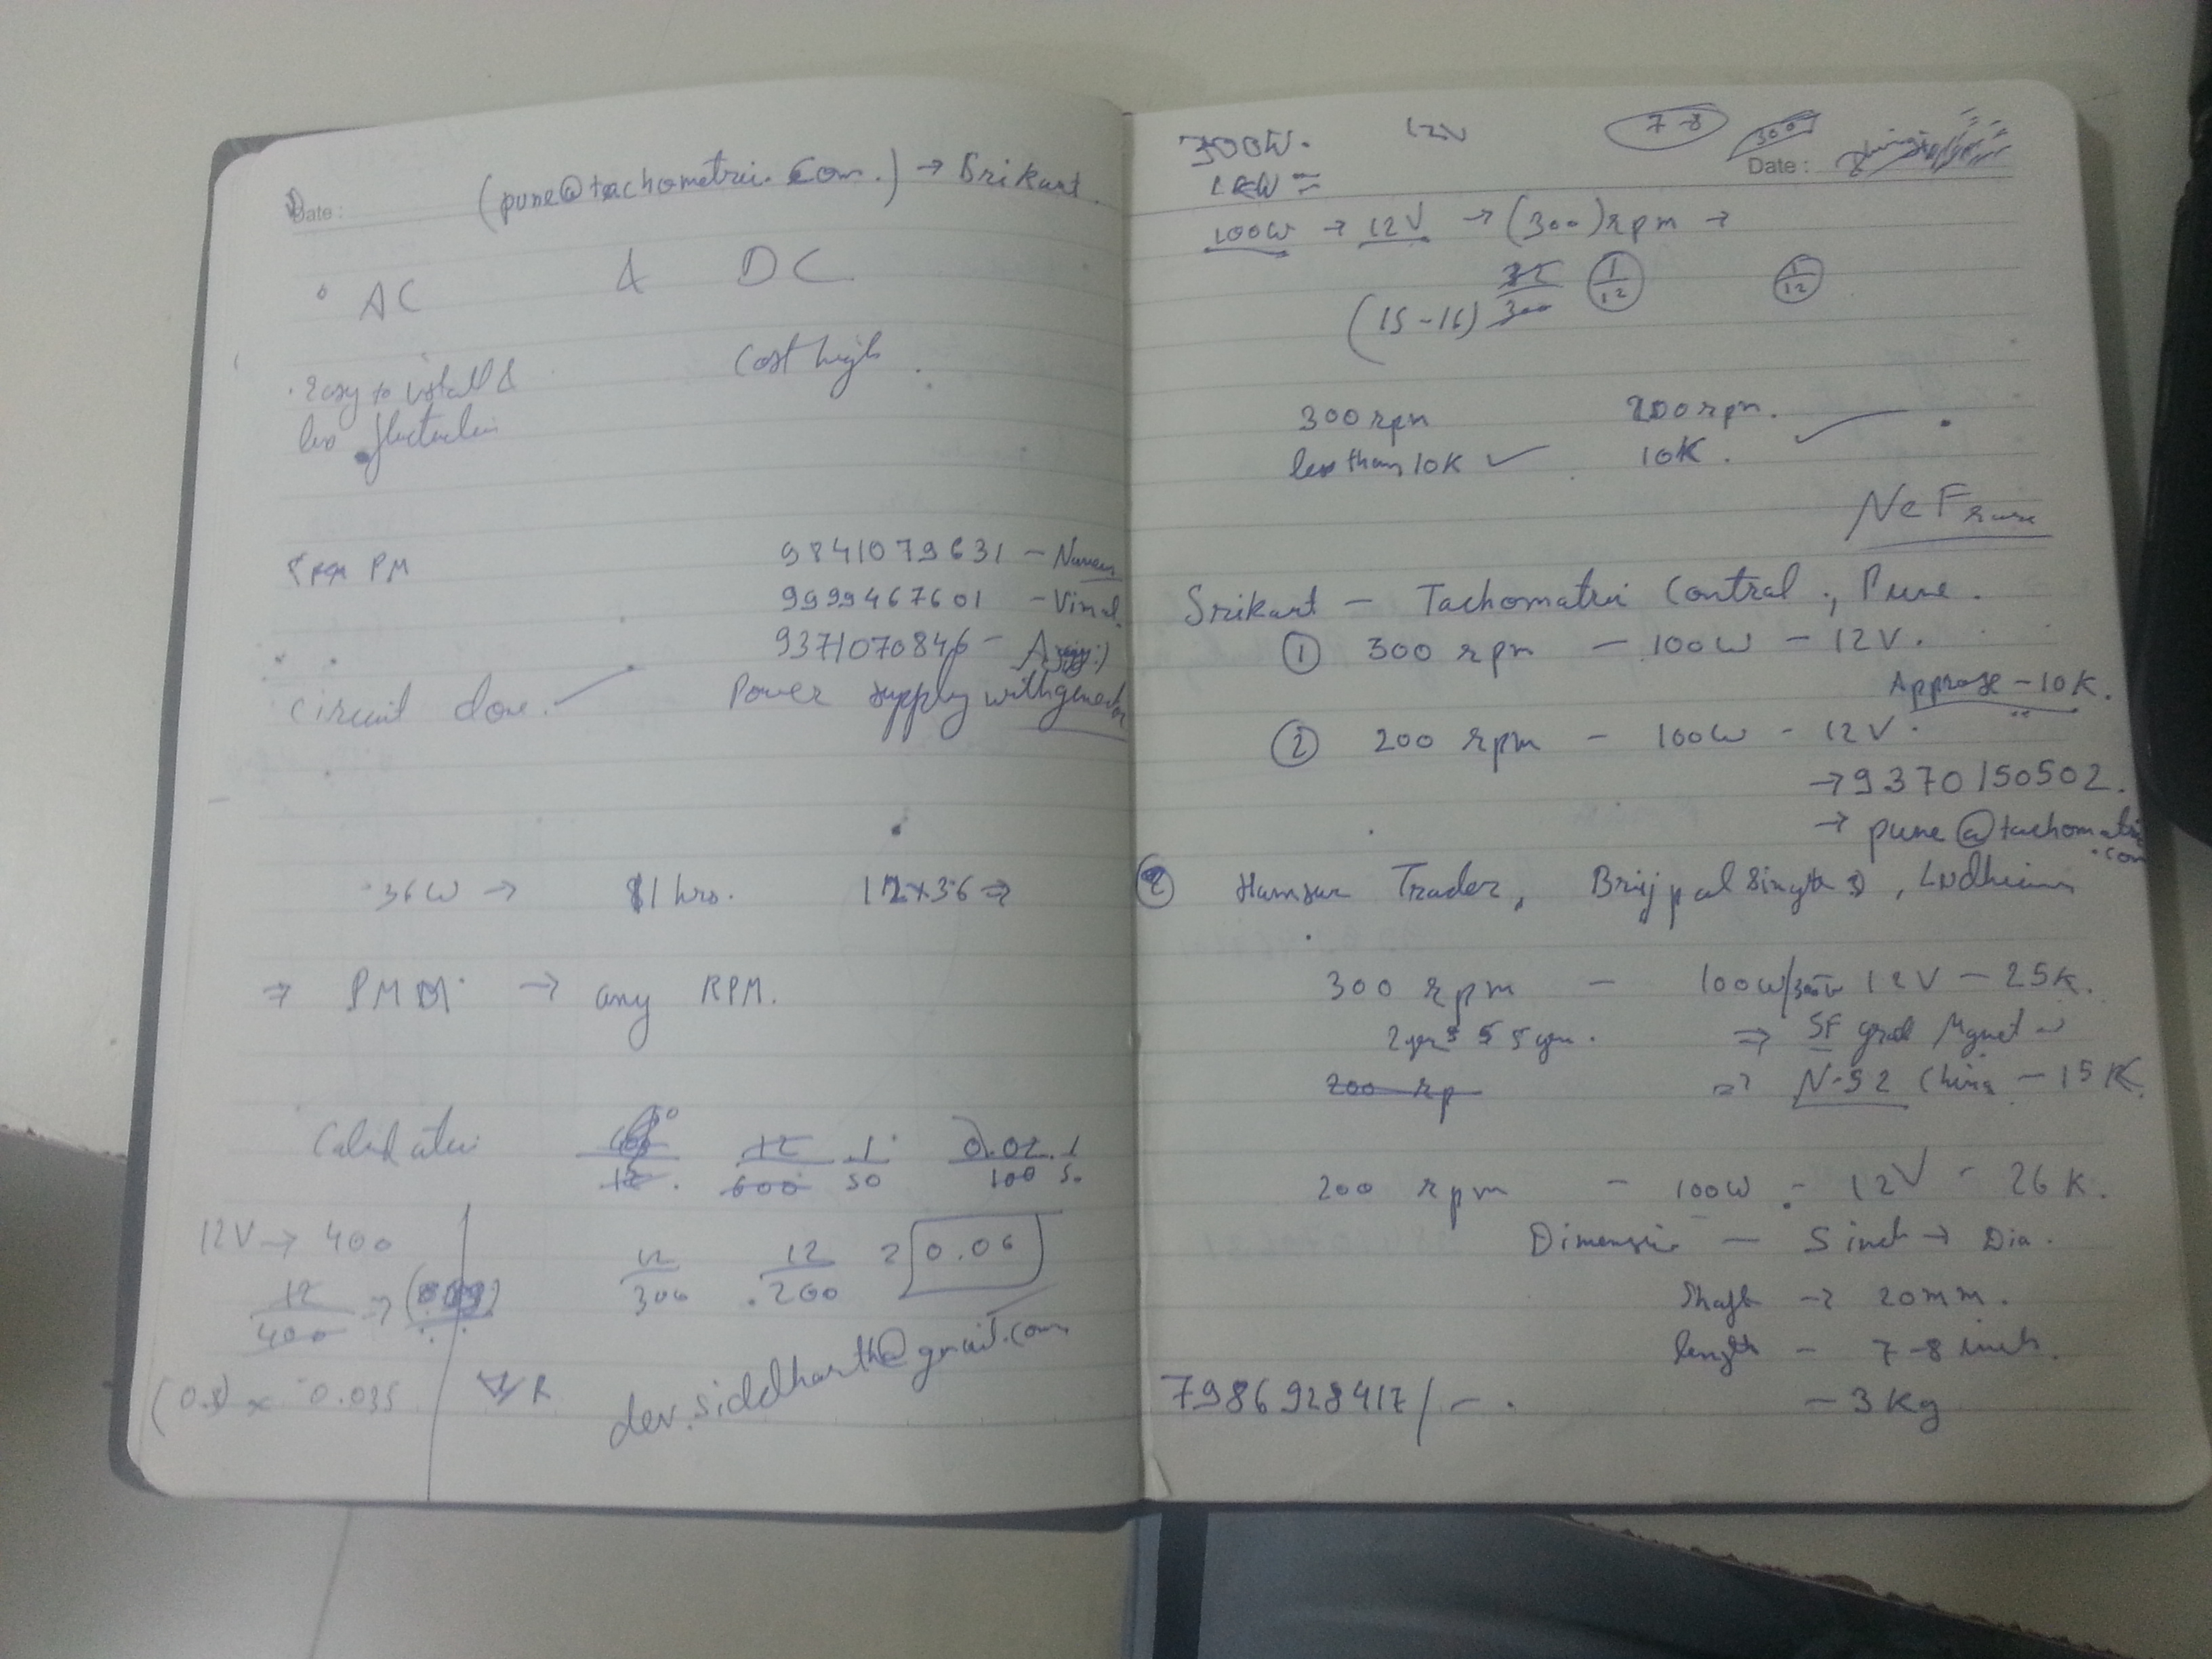 Date :
(pune@tachometric.com.) → Srikant.
AC & DC
Cost high.
· easy to install &
less fluctuation
PM
9841079631 - Naveen
9999467601 - Vimal.
9371070846 -
circuit done. Power supply with generator
36W → 1 hrs. 12x36 ⇒
⇒ PM → any RPM.
Calculation
12/600 1/50 0.02 1
100 50
12V → 400
12/300 12/200 0.06
12/400 →
dev.siddharth@gmail.com
× 0.035 R
300W. 12V 7-8 300
Date :
1KW =
100W → 12V → (300) rpm →
(15-16) 300 1/12 1/12
300 rpm 200 rpm.
less than 10K ✓ 10K. ✓
Srikant - Tachometric Control, Pune.
① 300 rpm - 100W - 12V.
Approx - 10K.
② 200 rpm - 100W - 12V.
→ 9370150502.
→ pune@tachometric
.com
Trader, Brijpal Singh, Ludhiana
300 rpm - 100W/300W 12V - 25K.
⇒ SF grad Mgnet
200 rp ⇒ N-52 China - 15K
200 rpm - 100W - 12V - 26K.
Dimension - 5 inch → Dia.
Shaft → 20mm.
length - 7-8 inch.
7986928417/-. - 3 Kg